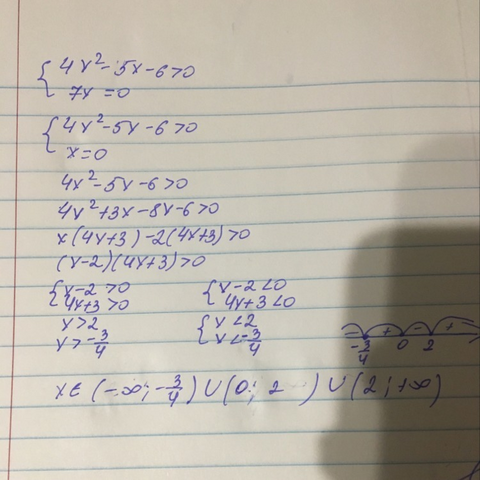 { 4x² - 5x - 6 > 0
7x = 0
{ 4x² - 5x - 6 > 0
x = 0
4x² - 5x - 6 > 0
4x² + 3x - 8x - 6 > 0
x(4x+3) - 2(4x+3) > 0
(x-2)(4x+3) > 0
{ x-2 > 0 { x-2 < 0
4x+3 > 0 4x+3 < 0
x > 2 { x < 2
x > -3/4 x < -3/4
- + - +
-3/4 0 2
x ∈ (-∞; -3/4) ∪ (0; 2) ∪ (2; +∞)